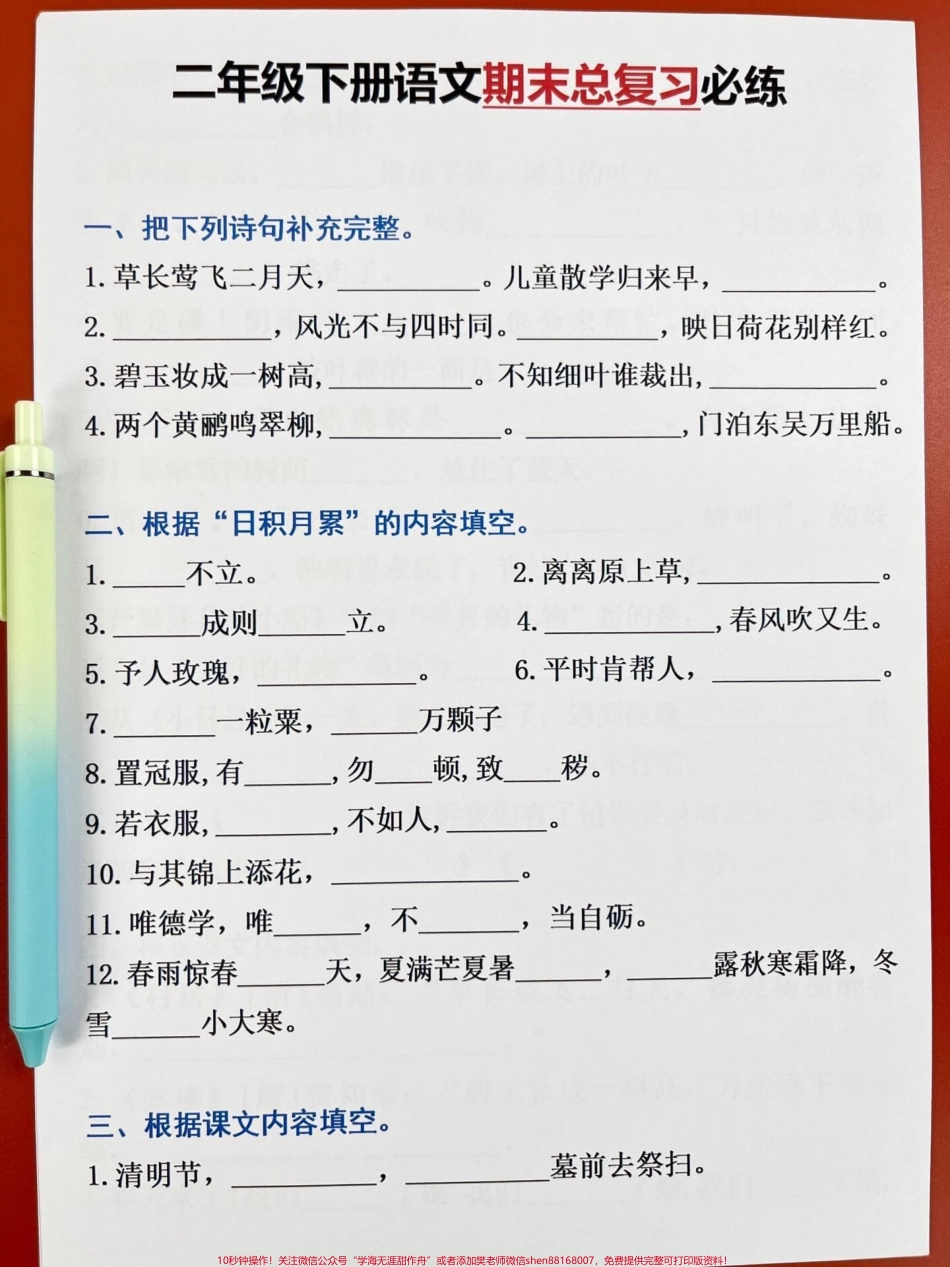 二年级下册语文期末总复习必练
一、把下列诗句补充完整。
1.草长莺飞二月天，__________。儿童散学归来早，___________。
2.___________，风光不与四时同。__________，映日荷花别样红。
3.碧玉妆成一树高,__________。不知细叶谁裁出,____________。
4.两个黄鹂鸣翠柳,____________。___________,门泊东吴万里船。
二、根据“日积月累”的内容填空。
1._____不立。 2.离离原上草,_____________。
3.______成则______立。 4.____________,春风吹又生。
5.予人玫瑰，___________。 6.平时肯帮人，____________。
7._______一粒粟，______万颗子
8.置冠服,有______,勿____顿,致____秽。
9.若衣服,________,不如人,_______。
10.与其锦上添花，_____________。
11.唯德学，唯______，不_______，当自砺。
12.春雨惊春______天，夏满芒夏暑______，______露秋寒霜降，冬
雪________小大寒。
三、根据课文内容填空。
1.清明节，__________，__________墓前去祭扫。
10秒钟操作！关注微信公众号“学海无涯甜作舟”或者添加樊老师微信shen88168007，免费提供完整可打印版资料！